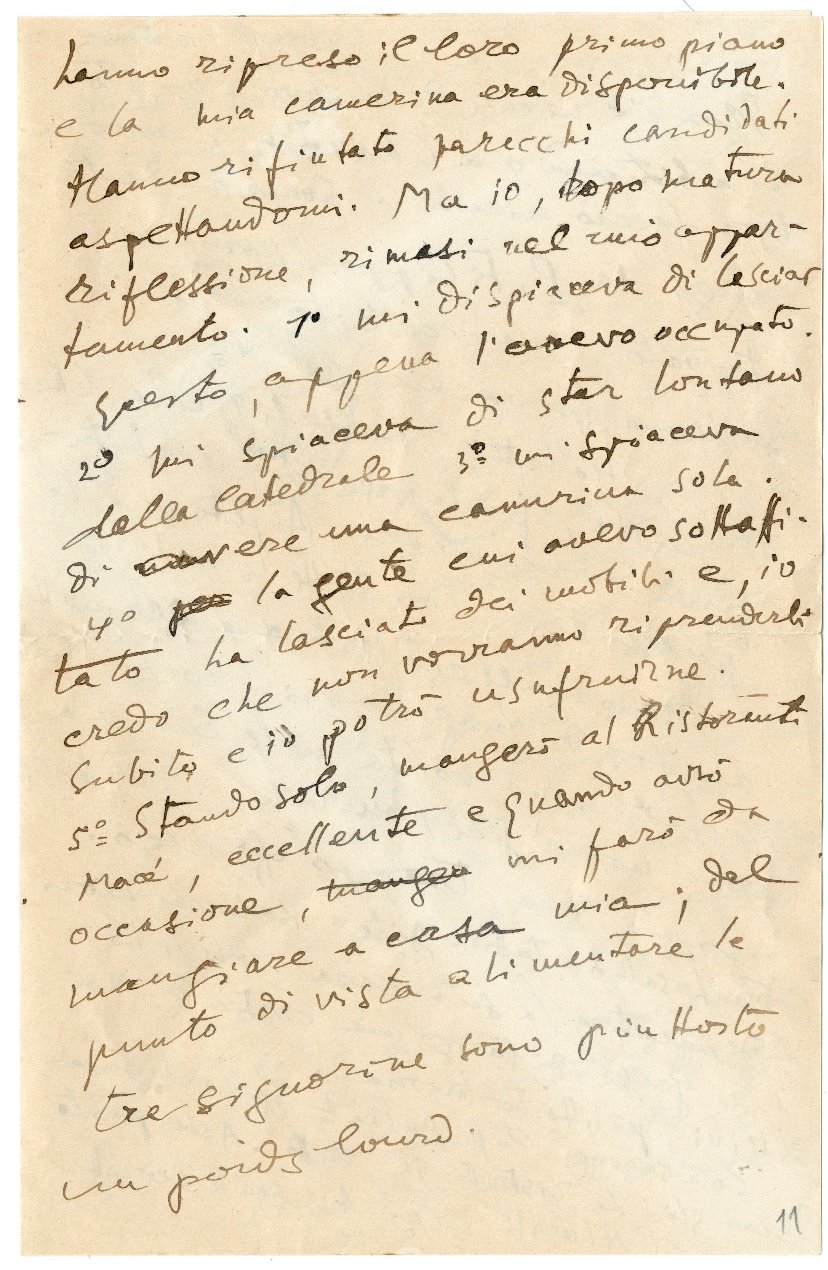 hanno ripreso il loro primo piano
e la mia camerina era disponibile.
Hanno rifiutato parecchi candidati
aspettandomi. Ma io, dopo matura
riflessione, rimasi nel mio appar-
tamento. 1º mi dispiaceva di lasciar
questo, appena l'avevo occupato.
2º mi spiaceva di star lontano
dalla Catedrale 3º mi spiaceva
di avere una camerina sola.
4º la gente cui avevo sottaffi-
tato ha lasciato dei mobili e, io
credo che non vorranno riprenderli
subito e io potrò usufruirne.
5º Stando solo, mangerò al Ristorante
Macé, eccellente e quando avrò
occasione, mangerò mi farò da
mangiare a casa mia; dal
punto di vista alimentare le
tre signorine sono piuttosto
un poids lourd.
11